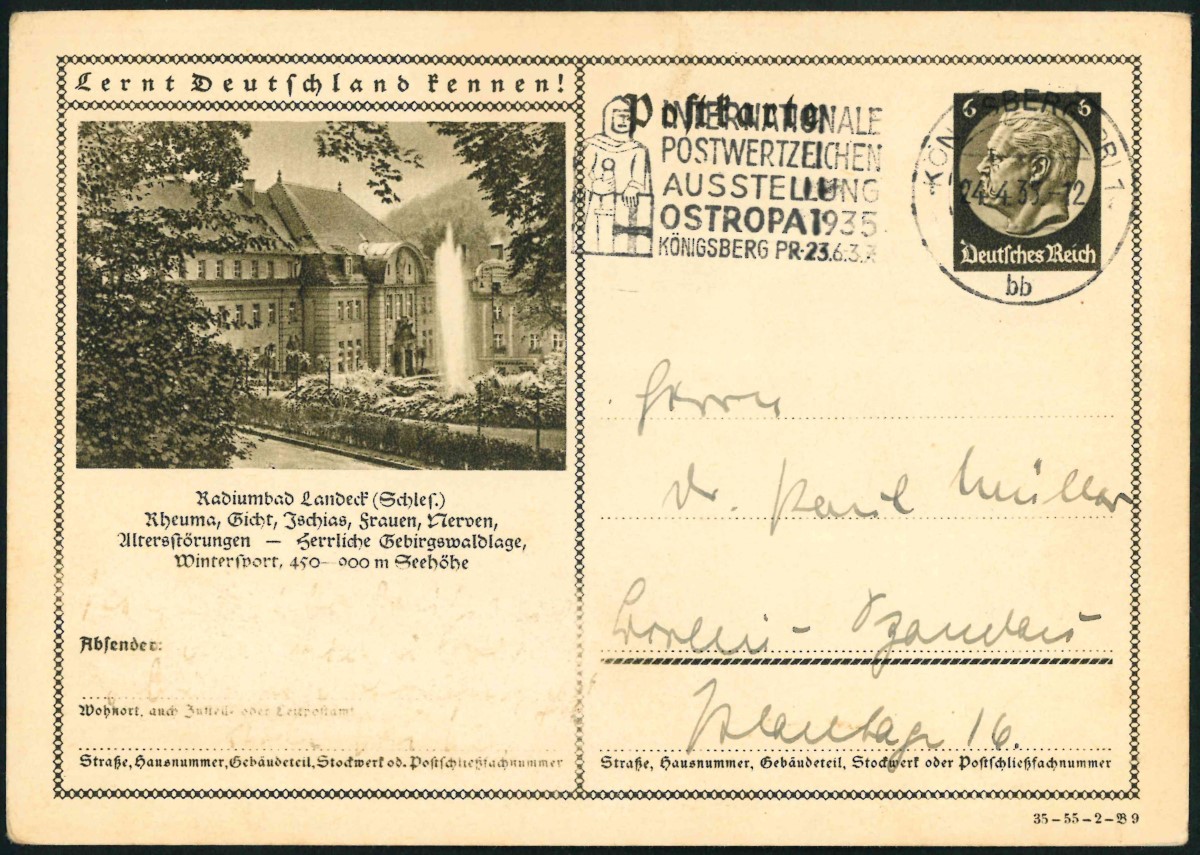 Lernt Deutschland kennen!
Postkarte
INTERNATIONALE
POSTWERTZEICHEN
AUSSTELLUNG
OSTROPA 1935
KÖNIGSBERG PR-23.6.3.
KÖNIGSBERG (PR) 1
24.4.35.-12
bb
6 6
Deutsches Reich
Radiumbad Landeck (Schles.)
Rheuma, Gicht, Ischias, Frauen, Nerven,
Altersstörungen — Herrliche Gebirgswaldlage,
Wintersport, 450—900 m Seehöhe
Absender:
Wohnort, auch Zustell- oder Leitpostamt
Straße, Hausnummer, Gebäudeteil, Stockwerk od. Postschließfachnummer
Herrn
Dr. Paul Müller
Berlin-Spandau
Plantage 16.
Straße, Hausnummer, Gebäudeteil, Stockwerk oder Postschließfachnummer
35-55-2-B 9